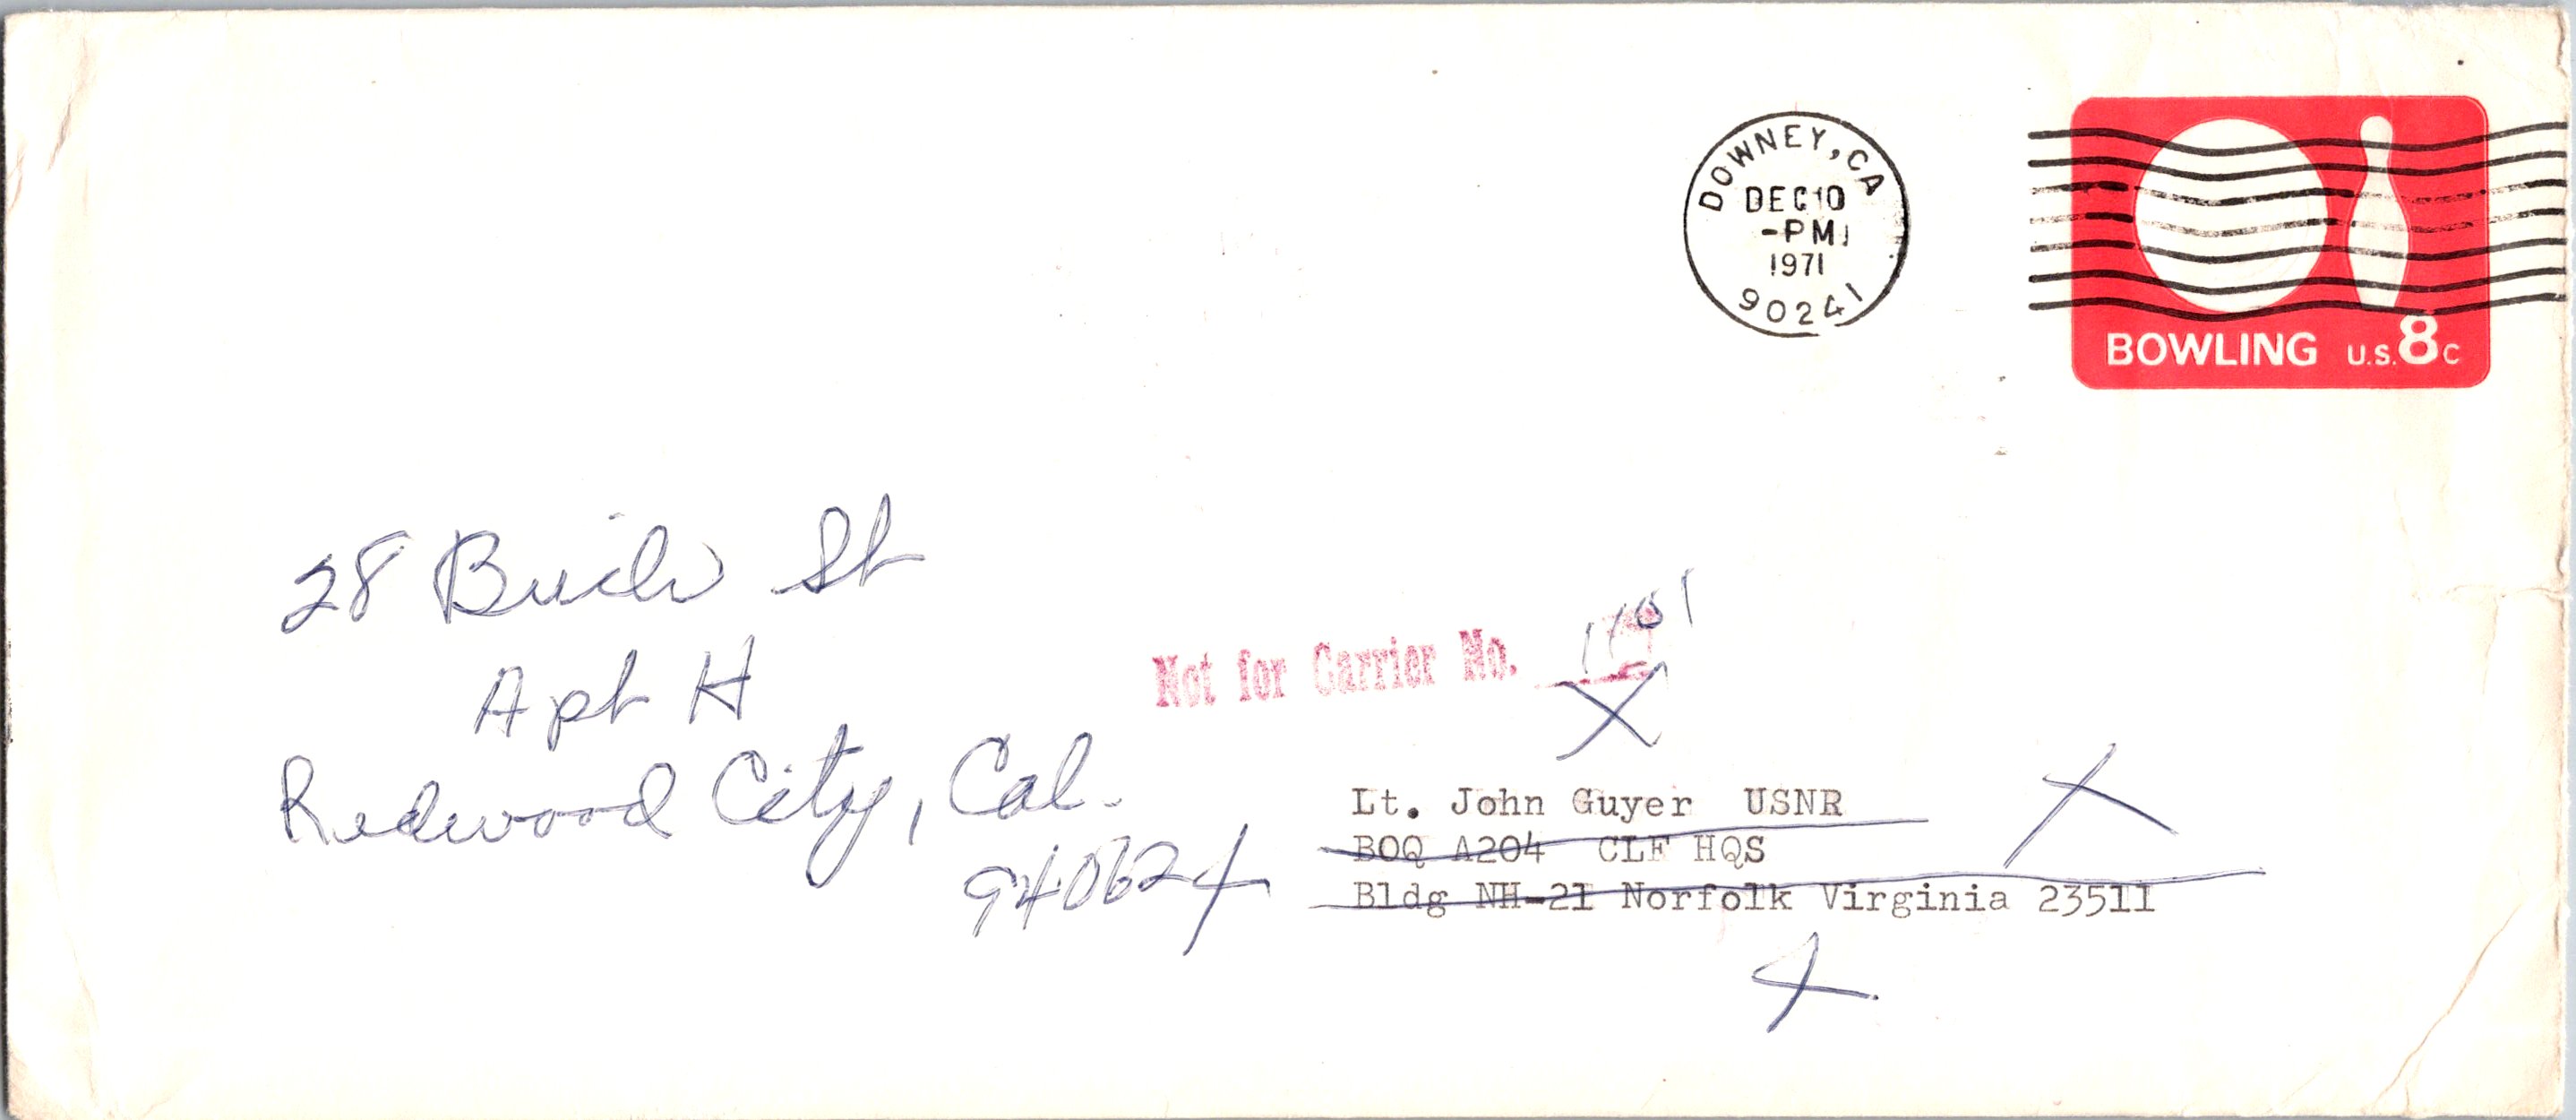 DOWNEY, CA
DEC 10
-PM
1971
90241
BOWLING U.S. 8c
28 St
Apt H
Redwood City, Cal.
94062
Not for Carrier No. 1101
Lt. John Guyer USNR
BOQ A204 CLF HQS
Bldg NH-21 Norfolk Virginia 23511